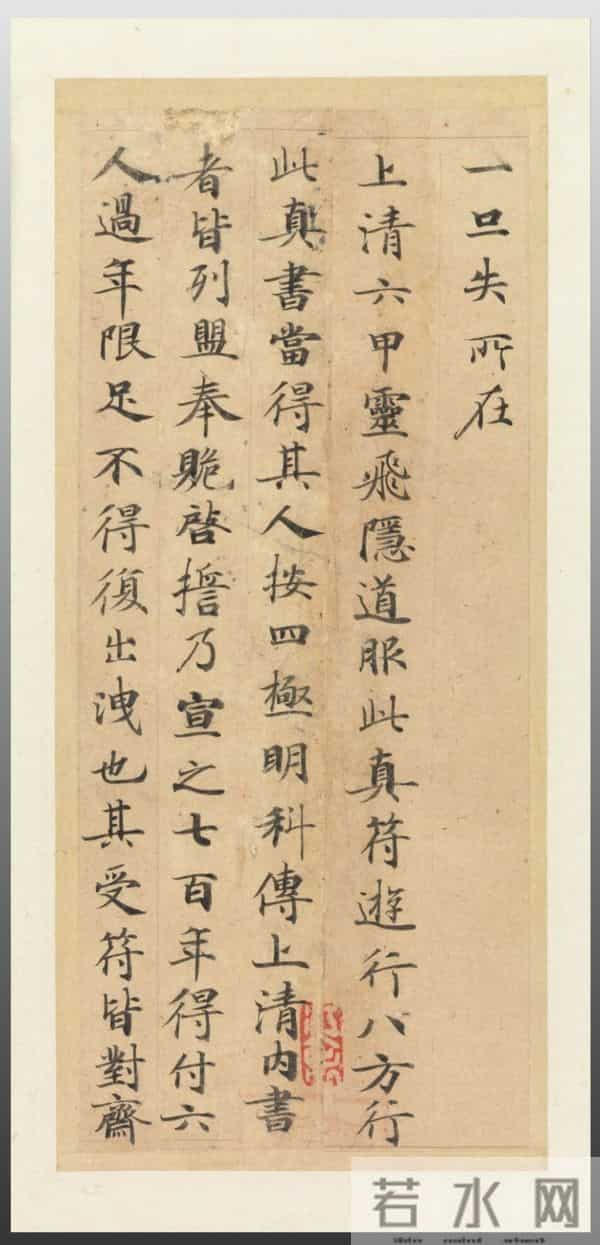 一旦失所在
上清六甲靈飛隱道服此真符遊行八方行
此真書當得其人按四極明科傳上清內書
者皆列盟奉贊啓擔乃宣之七百年得付六
人過年限足不得復出洩也其受符皆對齋
若水网